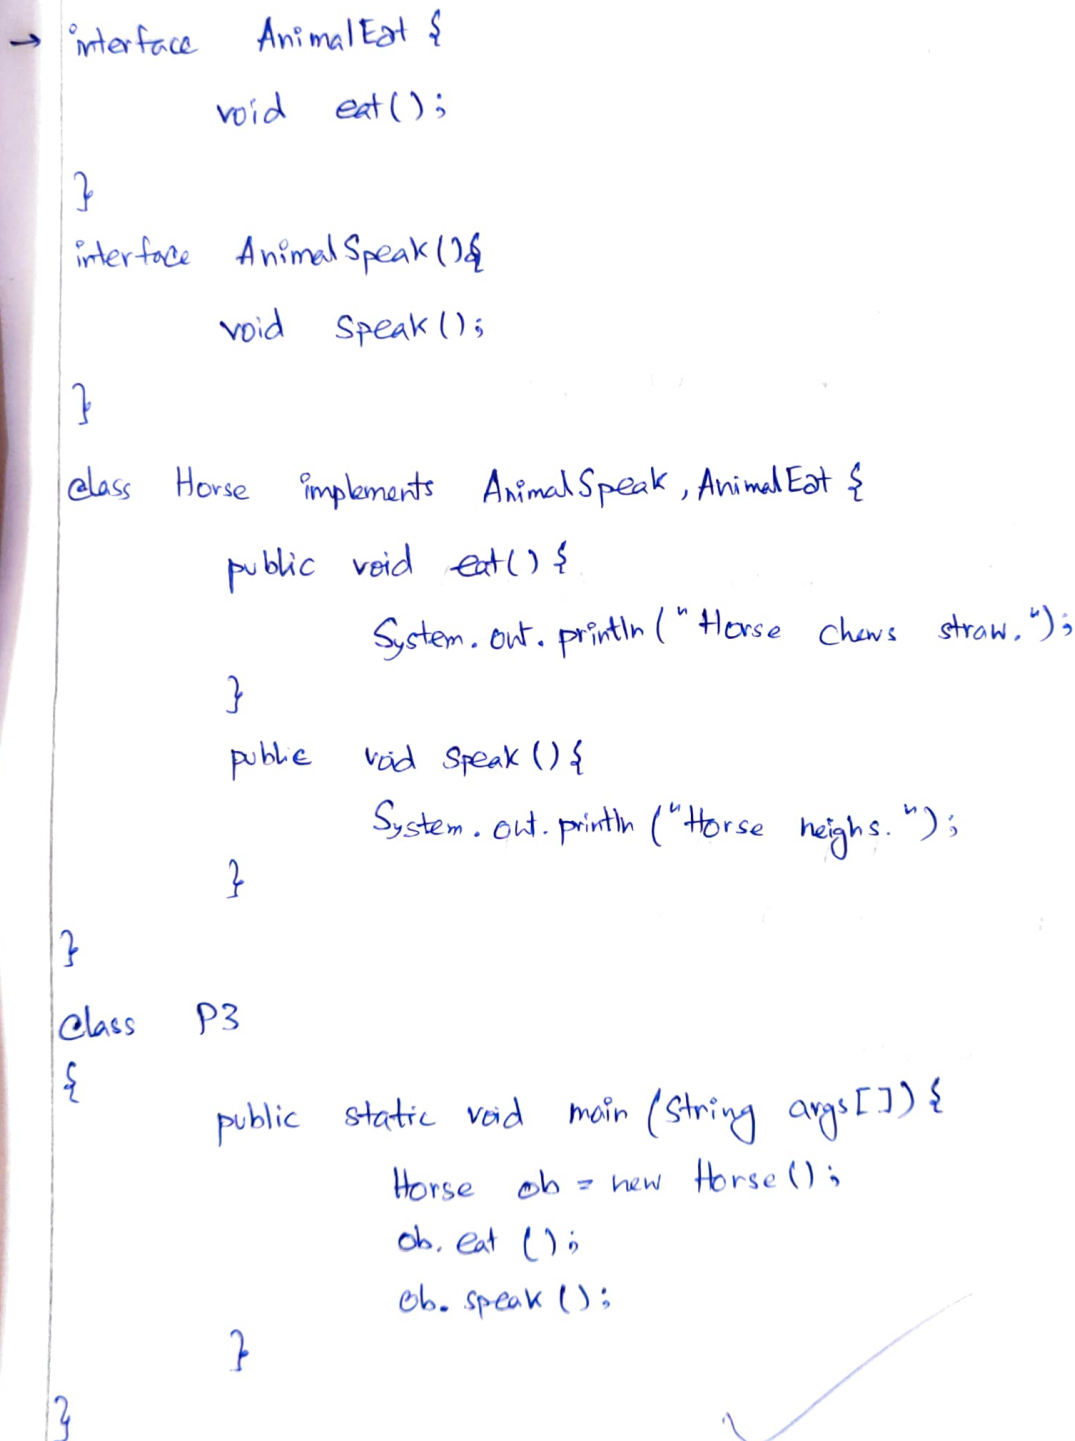 → interface AnimalEat {
void eat();
}
interface AnimalSpeak(){
void speak();
}
class Horse implements AnimalSpeak, AnimalEat {
public void eat() {
System.out.println("Horse chews straw.");
}
public void speak () {
System.out.println ("Horse neighs.");
}
}
class P3
{
public static void main (String args[]) {
Horse ob = new Horse();
ob.eat ();
ob.speak ();
}
}